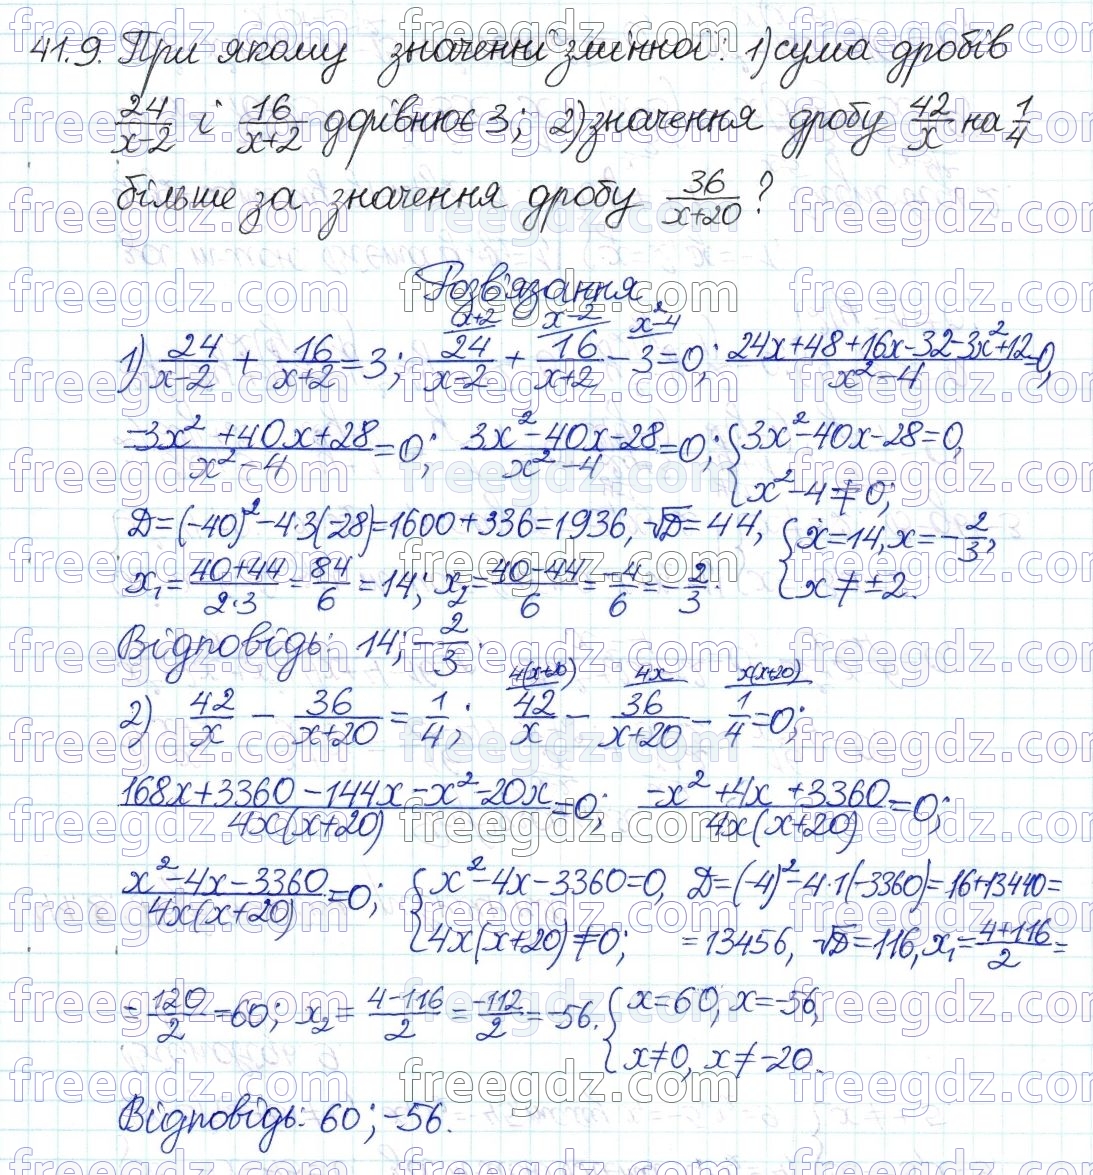 41.9. При якому значенні змінної: 1) сума дробів
24/(x-2) і 16/(x+2) дорівнює 3; 2) значення дробу 42/x на 1/4
більше за значення дробу 36/(x+20)?
Розв'язання
1) 24/(x-2) + 16/(x+2) = 3; 24/(x-2) (x+2) + 16/(x+2) (x-2) - 3 (x²-4) = 0; (24x+48+16x-32-3x²+12)/(x²-4) = 0,
(-3x²+40x+28)/(x²-4) = 0; (3x²-40x-28)/(x²-4) = 0; { 3x²-40x-28=0, x²-4≠0;
D=(-40)²-4·3(-28)=1600+336=1936, √D=44, { x=14, x=-2/3, x≠±2.
x₁=(40+44)/(2·3)=84/6=14; x₂=(40-44)/6=-4/6=-2/3.
Відповідь: 14; -2/3.
2) 42/x - 36/(x+20) = 1/4; 42/x 4(x+20) - 36/(x+20) 4x - 1/4 x(x+20) = 0;
(168x+3360-144x-x²-20x)/(4x(x+20)) = 0; (-x²+4x+3360)/(4x(x+20)) = 0;
(x²-4x-3360)/(4x(x+20)) = 0; { x²-4x-3360=0, 4x(x+20)≠0; D=(-4)²-4·1(-3360)=16+13440=
=13456, √D=116, x₁=(4+116)/2=
=120/2=60; x₂=(4-116)/2=-112/2=-56. { x=60, x=-56, x≠0, x≠-20.
Відповідь: 60; -56.
freegdz.com